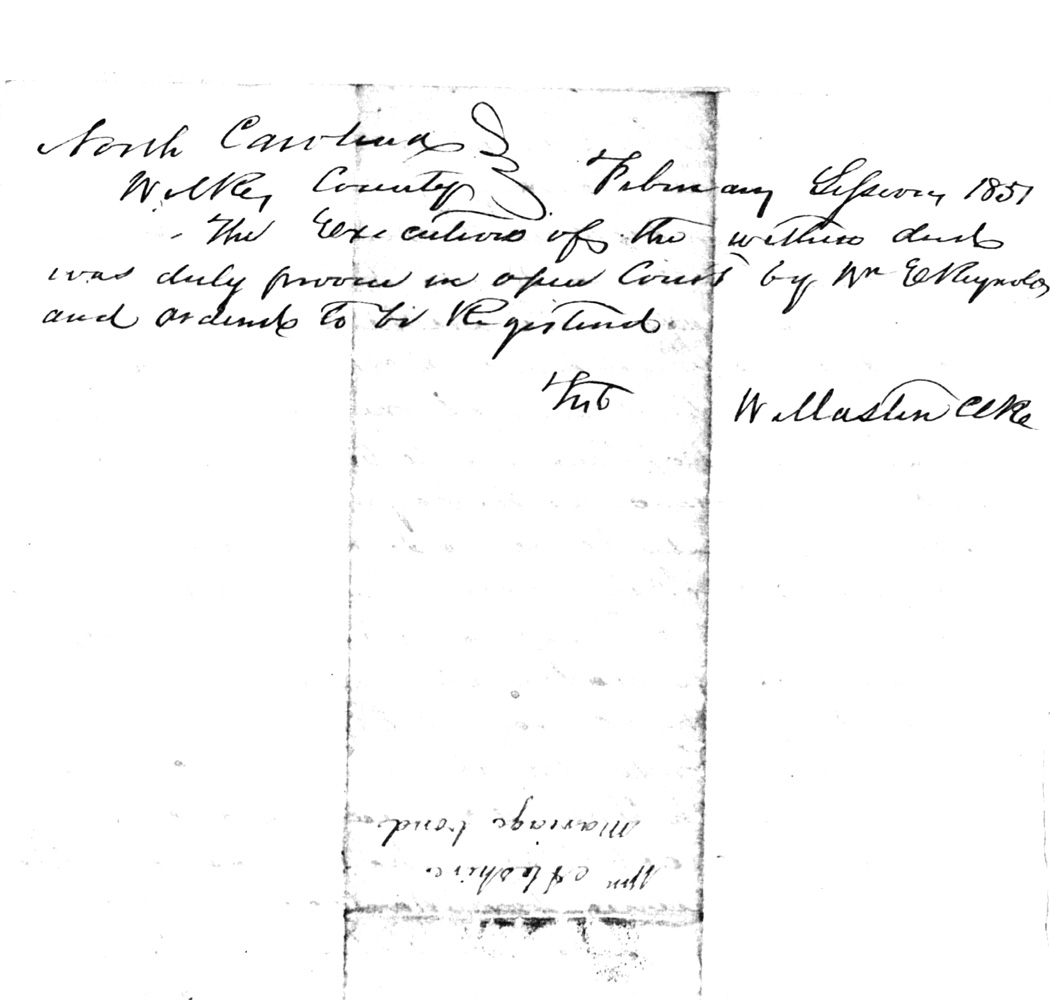 North Carolina
Wilkes County February Session 1851
The Execution of the within deed
was duly proven in open Court by Wm E Reynolds
and ordered to be Registered
Test W Mastin Clk
Wm Aleshire
Marriage bond